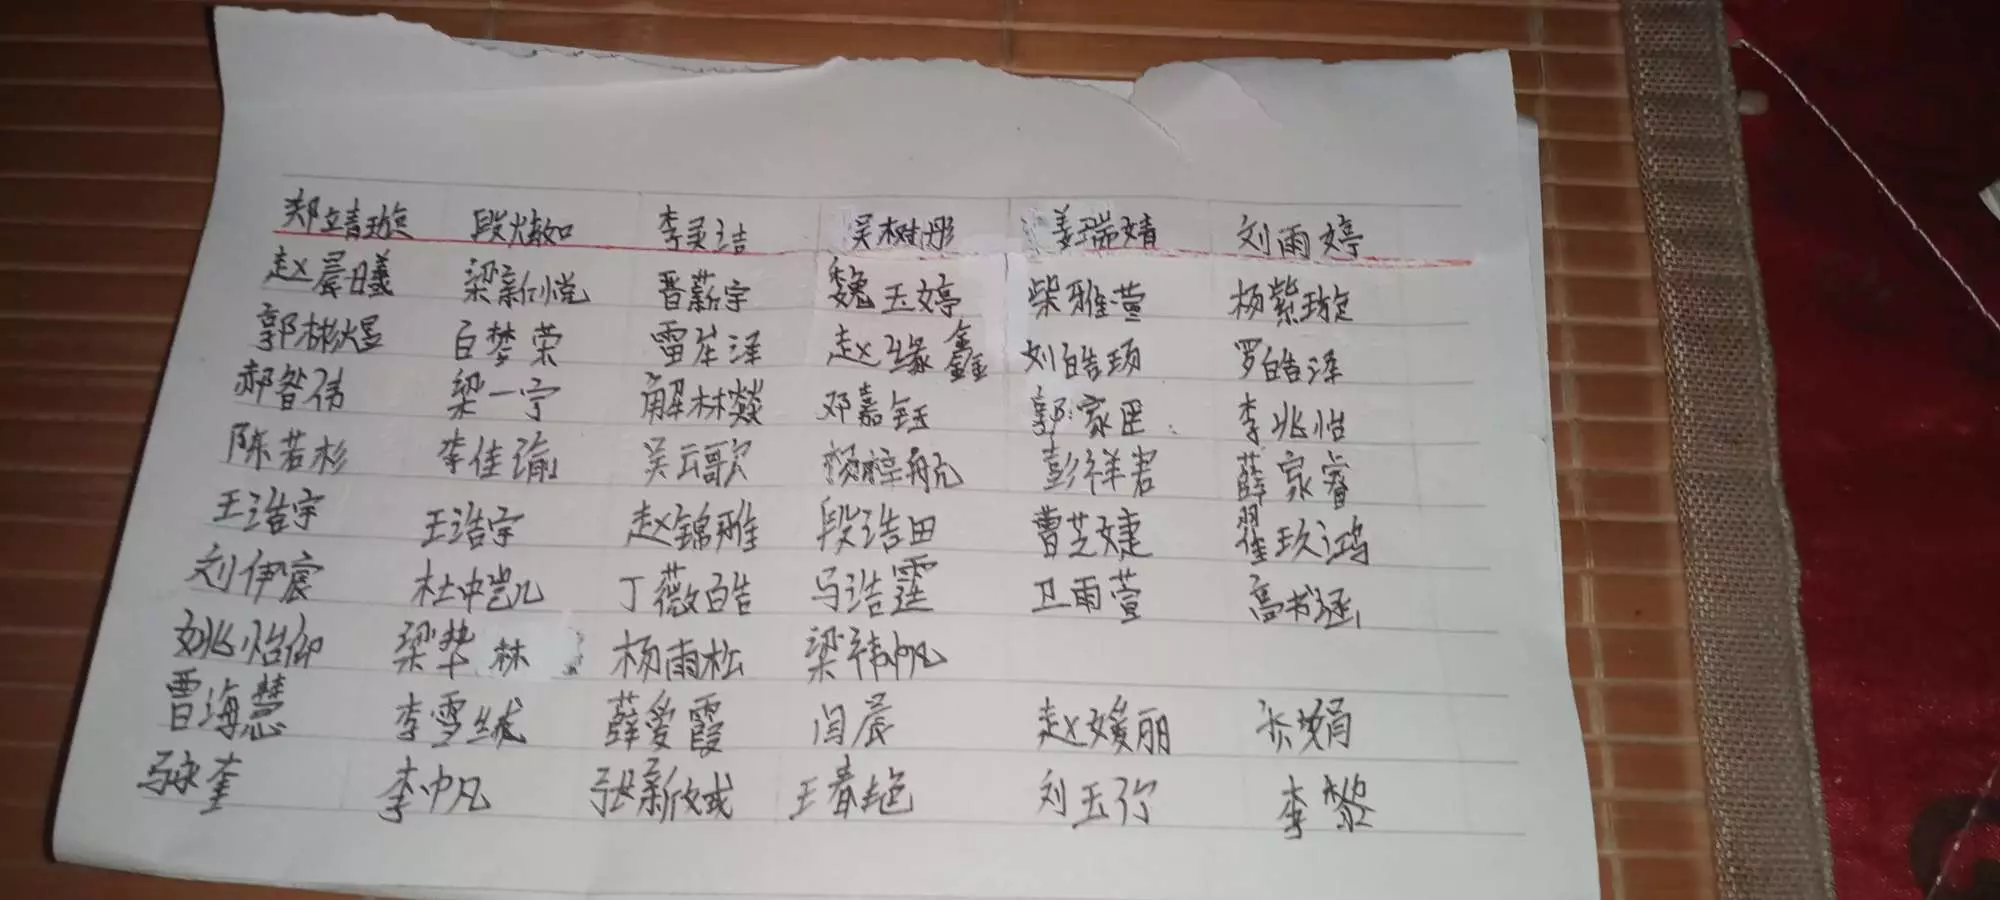 郑靖璇 段燉如 李灵洁 吴树彤 姜瑞婧 刘雨婷
赵晨曦 梁新悦 晋薪宇 魏玉婷 柴雅萱 杨紫璇
郭彬煜 白梦荣 雷岸泽 赵缘鑫 刘皓顼 罗皓泽
郝智伟 梁一宁 解林燚 邓嘉钰 郭家匡 李兆怡
陈若杉 李佳瑜 吴云歌 杨梓航 彭祥君 薛家睿
王浩宇 王浩宇 赵锦雅 段浩田 曹芝婕 翟玖鸿
刘伊宸 杜冲凯 丁薇皓 马浩霆 卫雨萱 高书涵
刘兆怡仰 梁华林 杨雨松 梁祎帆
曹海慧 李雪绒 薛爱霞 闫晨 赵媛丽 张娟
马永奎 李帅凡 张新斌 王春艳 刘玉珍 李黎